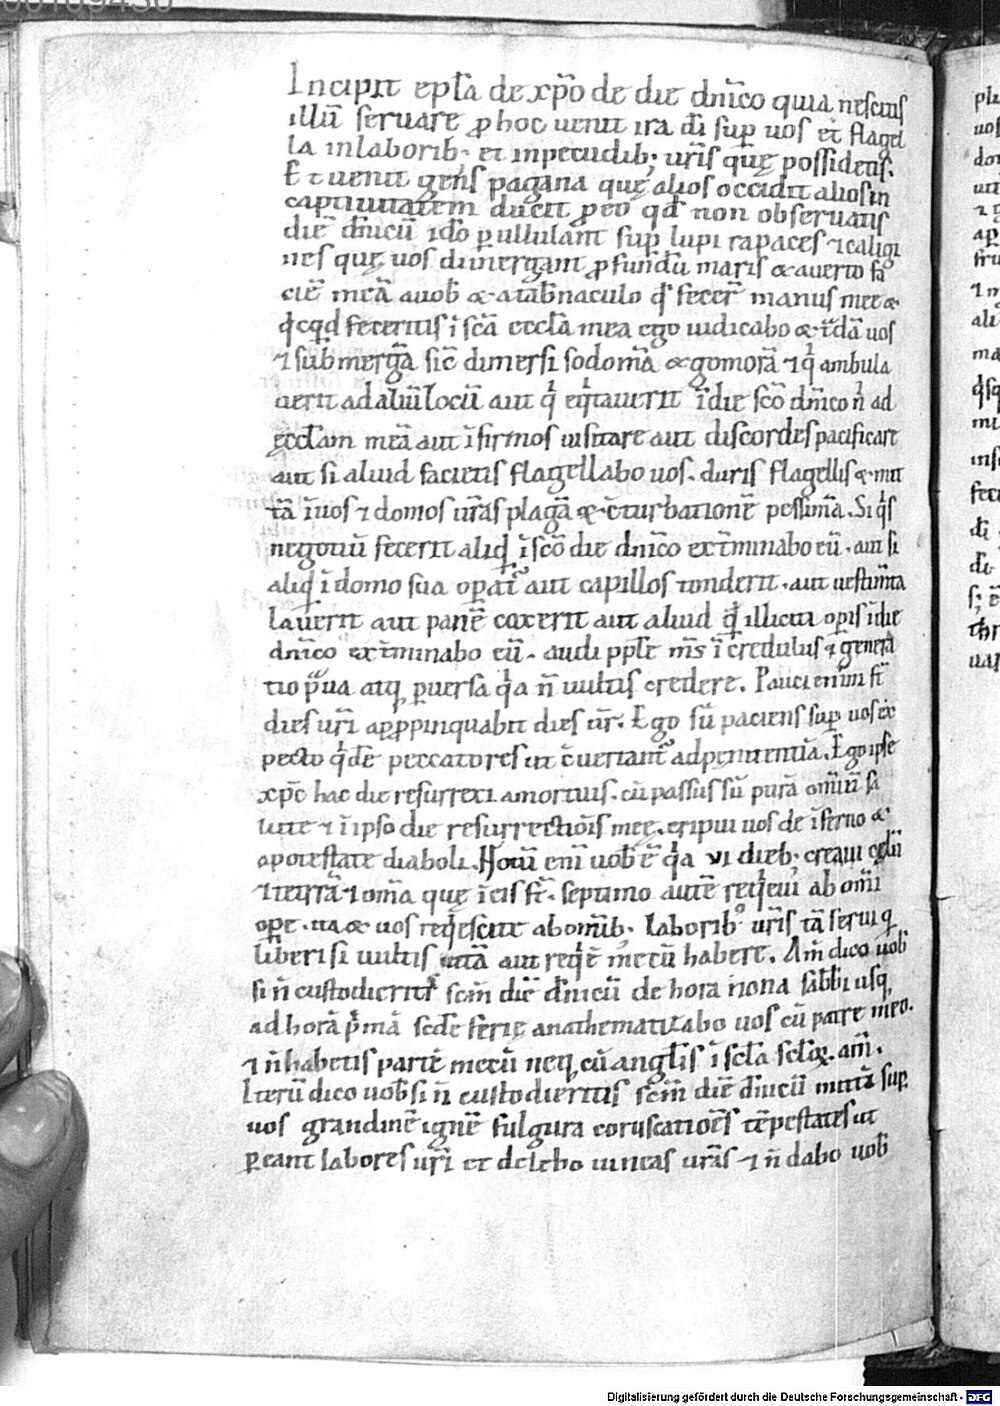 Incipit epl̄a de xp̄o de die dn̄ico quia nescitis
illū seruare p hoc uenit ira dī sup uos et flagel
la in laborib; et in pecudib; ur̄is quę possidetis.
Et uenit gens pagana quę alios occidit alios in
captiuitatem ducit p eo qd̄ non obseruatis
diē dn̄icū idō pullulant̄ sup lupi rapaces ⁊ caligi
nes quę uos dimergant pfundū maris & auerto fa
ciē meā a uob̄ & a tab̄naculo qd̄ fecer̄ manus meę &
qcqd feceritis ī sc̄a eccl̄a mea ego iudicabo & t̄dā uos
⁊ submergā sic̄ dimersi sodomā & gomorā ⁊ qi ambula
uerit ad aliū locū aut qi eqitauerit ī die sc̄o dn̄ico n̄ ad
ęccl̄am meā aut īfirmos uisitare aut discordes pacificare
aut si aliud facietis flagellabo uos. duris flagellis & mit
tā ī uos ⁊ domos ur̄as plagā & c̄turbationē pessimā. Si qis
negotiū fecerit aliqd ī sc̄o die dn̄ico ext̄minabo eū. aut si
aliqd ī domo sua opat̄ aut capillos tonderit. aut uestim̄ta
lauerit aut panē coxerit aut aliud qd̄ illiciti opis ī die
dn̄ico ext̄minabo eū. audi pple m̄s īcredulus ⁊ genera
tio p̄ua atq puersa qia n̄ uultis credere. Pauci enim st̄
dies ur̄i appropinquabit dies ur̄. Ego sū paciens sup uos ex
pecto qd̄e peccatores ut c̄uertant̄ ad pęnitentiā. Ego ipse
xp̄c hac die resurrexi a mortuis. cū passus sū p ur̄a omiū sa
lute ⁊ ī ipso die resurrectiōis meę. eripui uos de īferno &
a potestate diaboli. Notū enī uob̄ ē qia vi dieb; creaui cęlū
⁊ terrā ⁊ om̄a quę ī eis st̄. septimo autē reqeui ab om̄i
ope. ita & uos reqescite ab om̄ib; laborib; ur̄is tā serui q
liberi si uultis uitā aut reqē mecū habere. Am̄ dico uob̄
si n̄ custodierit̄ scm̄ diē dn̄icū de hora nona sabb̄i usq
ad horā p̄mā scd̄e ferię anathematizabo uos cū patre meo.
⁊ n̄ habetis partē mecū neq cū angl̄is ī scl̄a scl̄oꝝ. am̄.
Iterū dico uob̄ si n̄ custodieritis scm̄ diē dn̄icū mittā sup
uos grandinē ignē fulgura coruscatioēs tēpestates ut
peant labores ur̄i et delebo uineas ur̄as ⁊ n̄ dabo uob̄
Digitalisierung gefördert durch die Deutsche Forschungsgemeinschaft - DFG